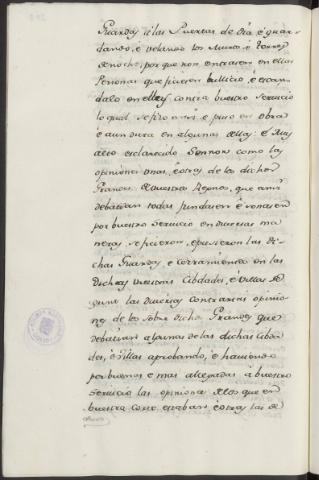 Guardas á las Puertas de dia, é guar-
dando, é velando los Muros, é torres
de noche, por que non entrasen en ellas
Personas que ficiesen bullicio, é escan-
dalo en ellas contra vuestro servicio
lo qual se fizo así é puso en obra
é aun dura en algunas dellas. é Muy
alto esclarecido Sennor como las
opiniones unas, é otras de los dichos
Grandes de vuestros Reynos, que ansi
debatian todas fundasen é tomasen
por vuestro servicio en diversas ma-
neras se ficieron, é pusieron las di-
chas Guardas é cerramientos en las
Dichas vuestras Cibdades, é Villas se-
gunt las diversas é contrarias opinio-
nes de los sobre dichos Grandes que
debatian algunas de las dichas Cibda-
des, é villas aprobando, é haviendo
por buenas é mas allegadas á vuestro
servicio las opiniones de los que en
vuestra Corte estaban é otras las de